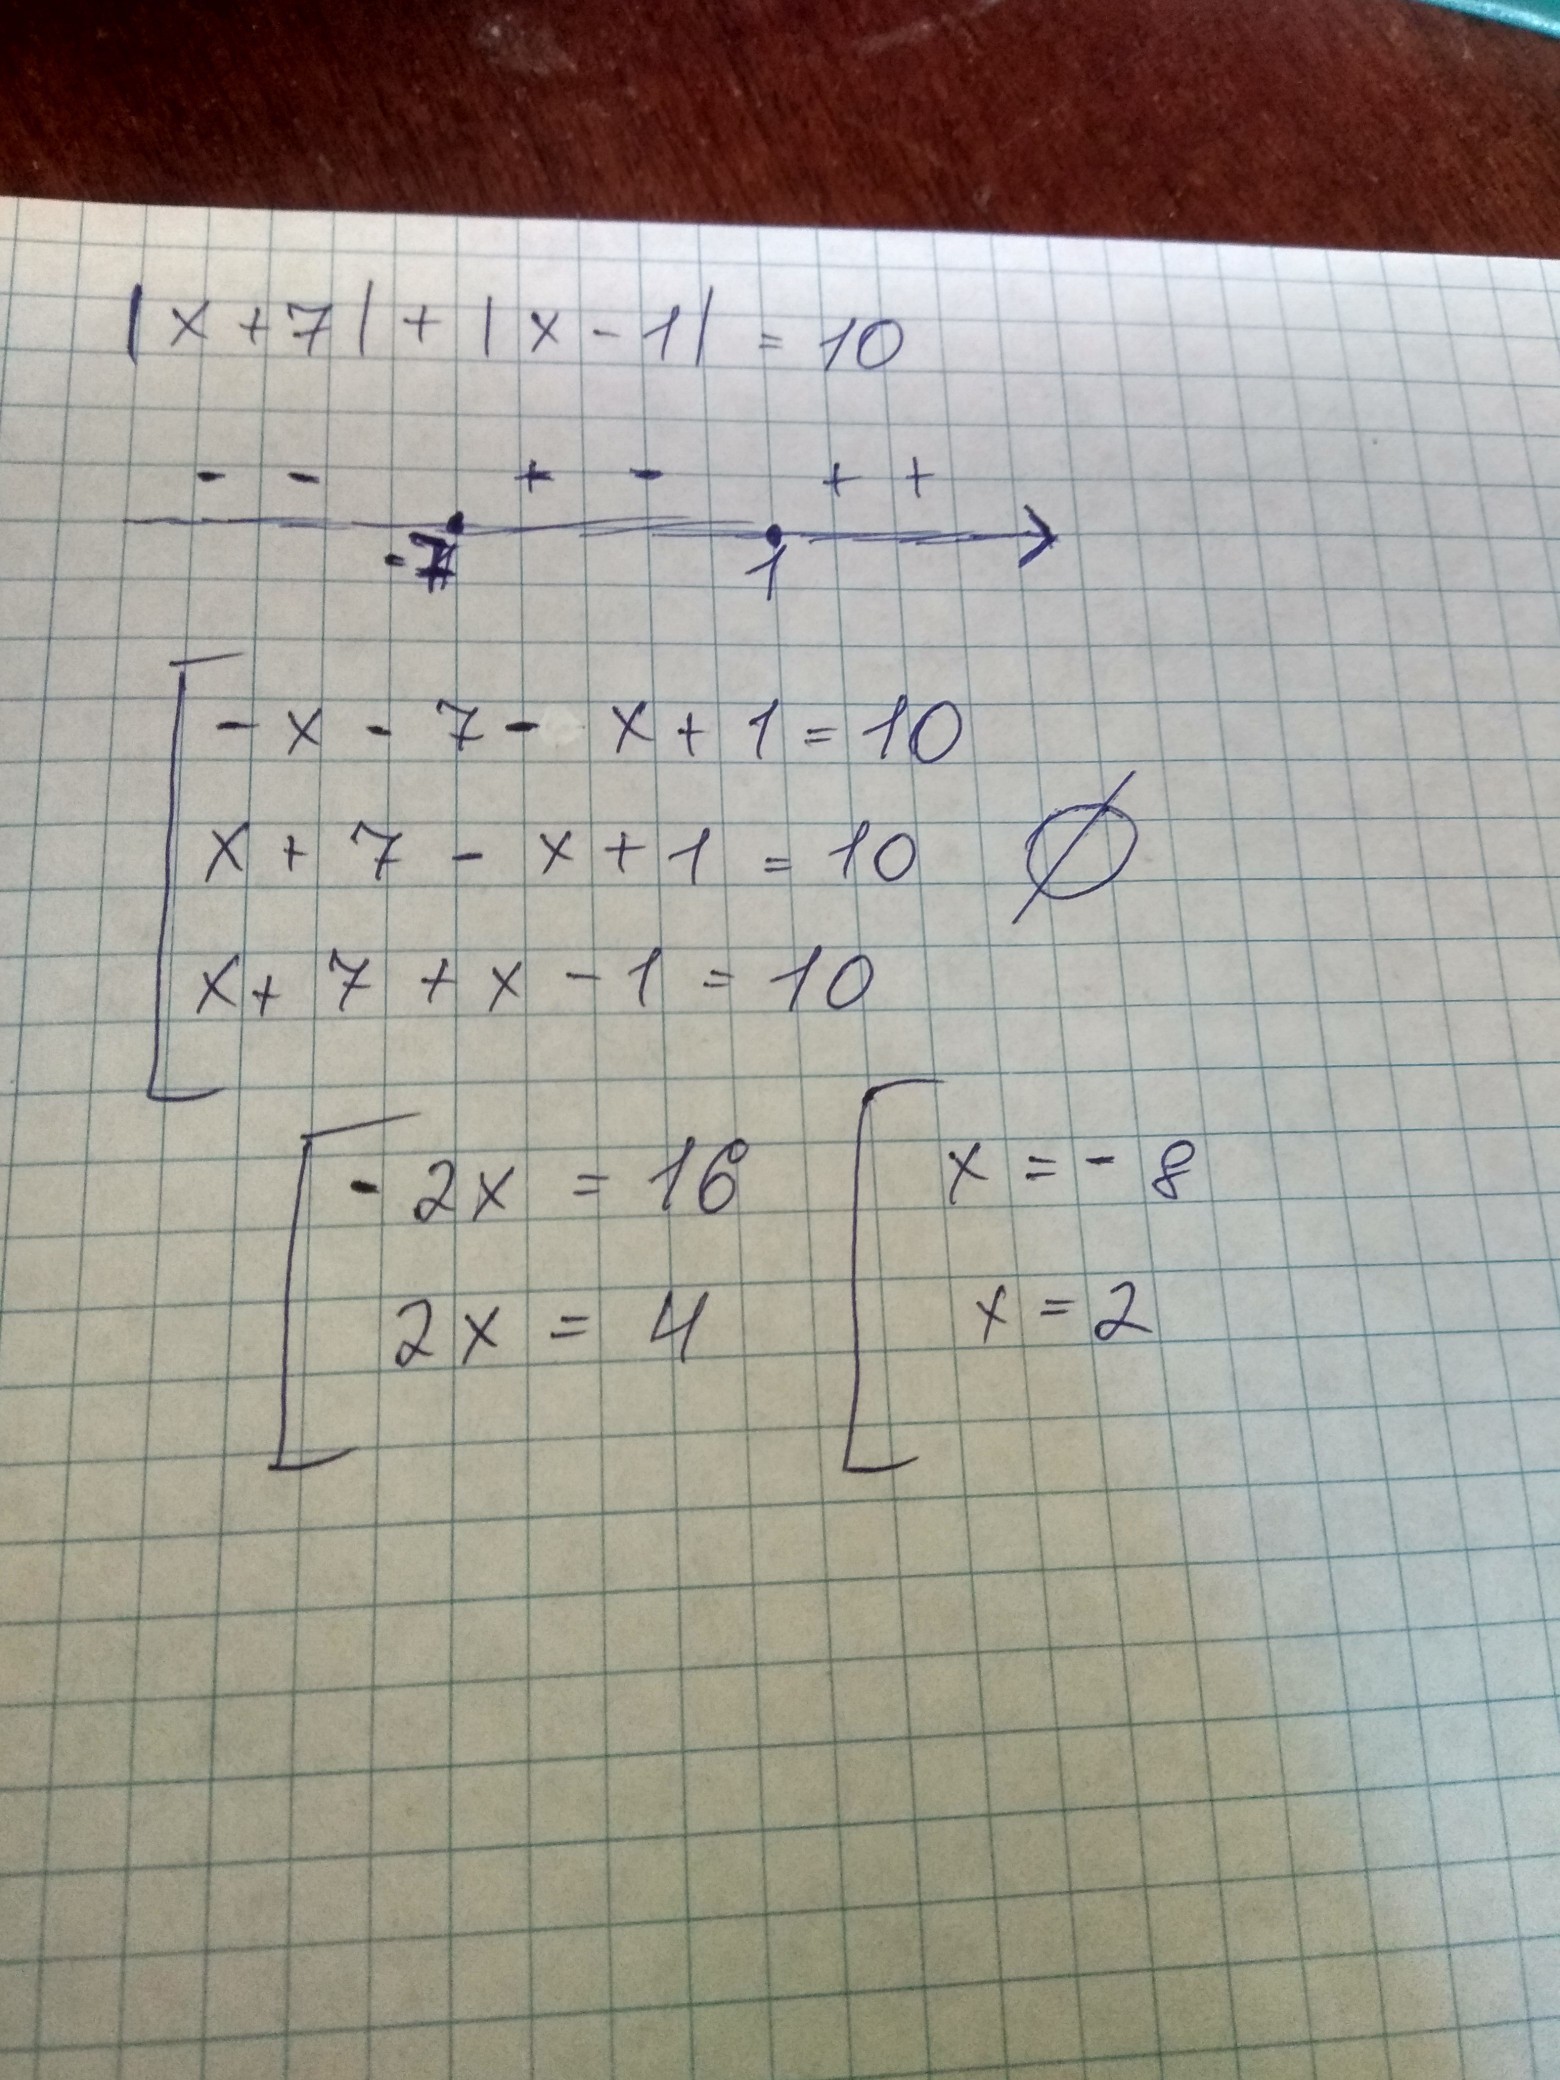 |x+7|+|x-1|=10
- - + - + +
-7 1
-x-7-x+1=10
x+7-x+1=10 ∅
x+7+x-1=10
-2x=16 x=-8
2x=4 x=2